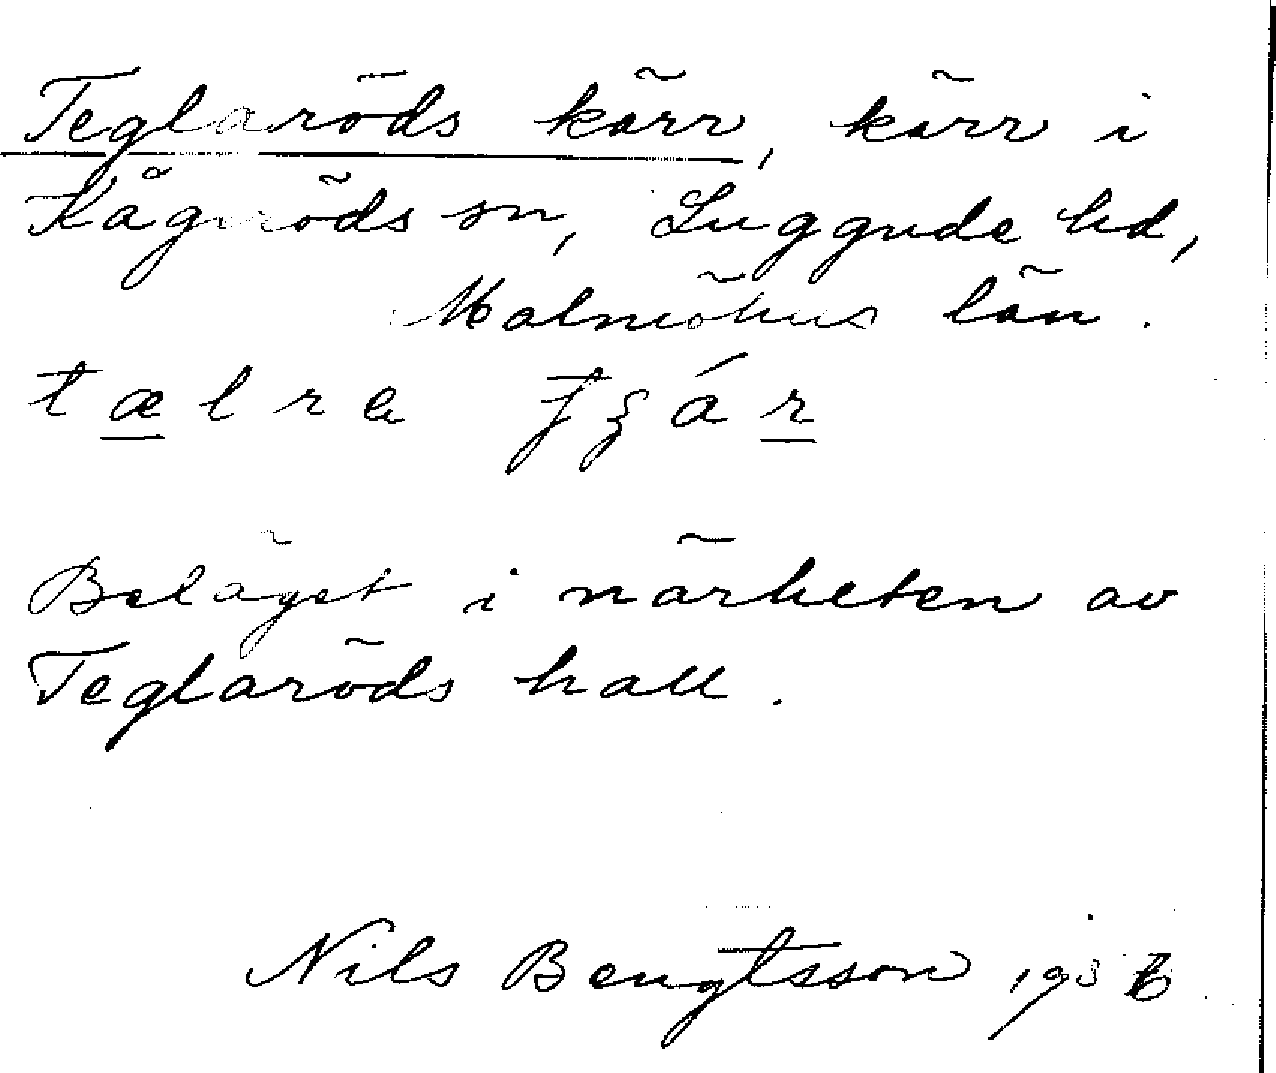 Teglaröds kärr, kärr i
Kågeröds sn, Luggude hd,
Malmöhus län.
Beläget i närheten av
Teglaröds hall.
Nils Bengtsson